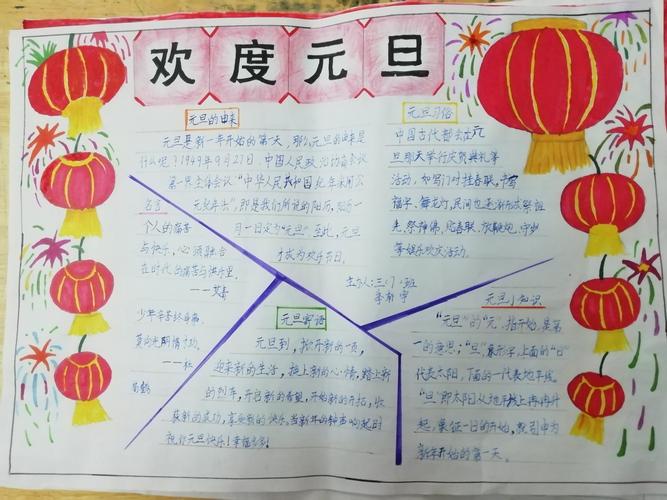 欢度元旦
元旦的由来
元旦是新一年开始的第一天，那么元旦的由来是
什么呢？1949年9月27日，中国人民政治协商会议
第一界全体会议"中华人民共和国纪年采用公
元纪年法"，即是我们所说的阳历，
月一日定为"元旦"至此，元旦
才成为欢乐节日。
名言
个人的痛苦
与快乐，必须融合
在时代的痛苦与快乐里。
——艾青
少年辛苦终身事，
莫向光阴惰寸功。
——杜
荀鹤
元旦习俗
中国古代都会在元
旦那天举行庆贺典礼等
活动，如写门对挂春联，书写
福字、舞龙灯，民间也逐渐形成祭祖
先，祭神佛，贴春联、放鞭炮，守岁
等娱乐欢庆活动。
主办人：三、门班
元旦寄语
元旦到，掀开新的一页，
迎来新的生活，换上新的心情，踏上新
的列车，开启新的希望，开始新的开拓，收
获新的成功，享受新的快乐，当新年的钟声响起时
祝你元旦快乐！幸福多多！
元旦小知识
"元旦"的"元"，指开始，是第
一的意思；"旦"，象形字，上面的"日"
代表太阳，下面的一代表地平线。
"旦"即太阳从地平线上冉冉升
起，象征一日的开始，就引申为
新年开始的第一天。